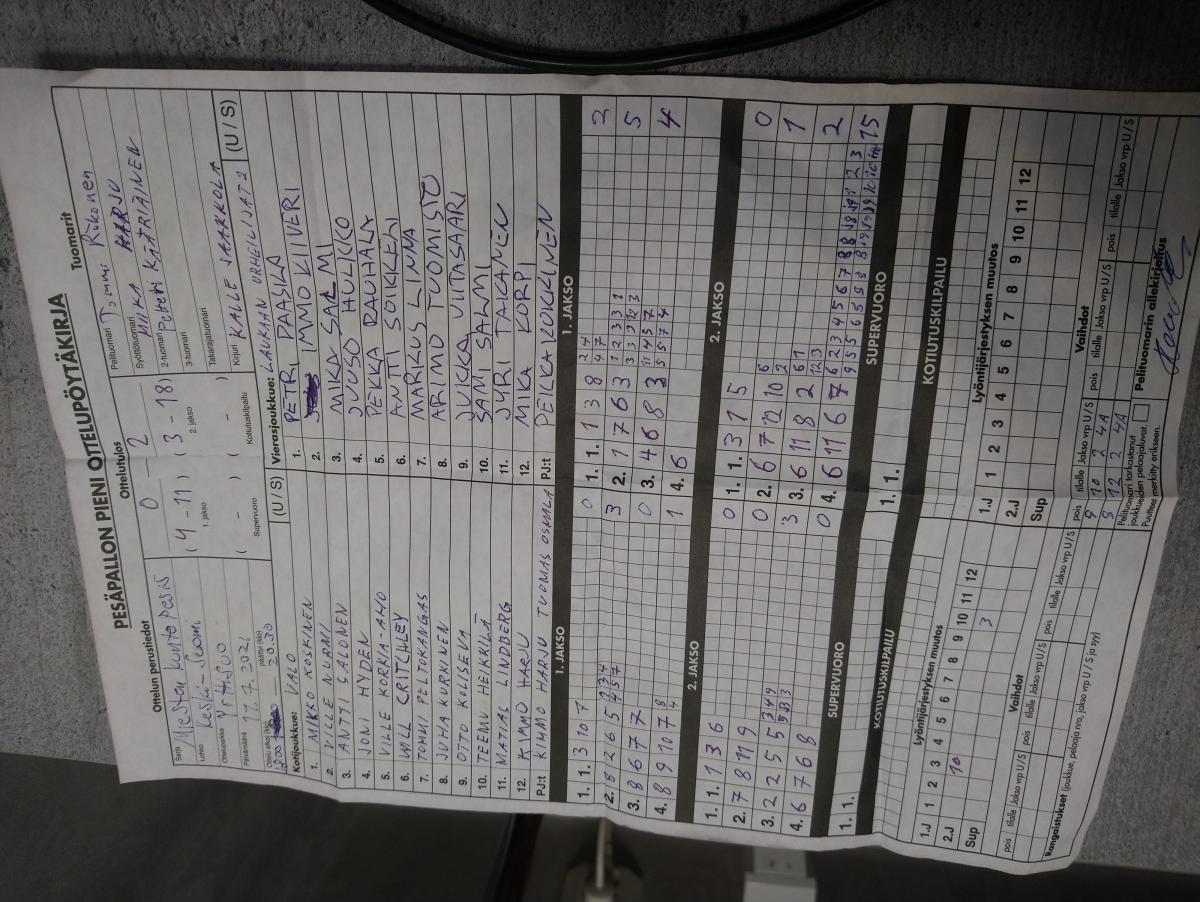 PESÄPALLON PIENI OTTELUPÖYTÄKIRJA
Ottelun perustiedot
Ottelutulos
Tuomarit
Sarja
Miesten Kuntopesis
0 – 2
Pelituomari Tommi Rikonen
Lohko
Keski-Suomi
(4 - 11) (3 - 18)
1. jakso
2. jakso
Syöttötuomari MIIKA
Ottelupaikka
2-tuomari Petteri KÄÄRIÄINEN
3-tuomari
Päivämäärä
17.7.2021
( - ) ( - )
Supervuoro
Kotiutuskilpailu
Takarajatuomari
Ottelu alkoi (klo)
päättyi (klo)
20.30
Kirjuri KALLE JAAKKOLA
Kotijoukkue: VALO (U / S)
1. MIKKO KOSKINEN
2. VILLE NURMI
3. ANTTI SALONEN
4. JONI HYDEN
5. VILLE KORKIA-AHO
6. WILL CRITCHLEY
7. TOMMI PELTOKANGAS
8. JUHA KURKINEN
9. OTTO KOLISEVA
10. TEEMU HEIKKILÄ
11. MATIAS LINDBERG
12. KIMMO HARJU
PJ:t KIMMO HARJU TUOMAS OSKALA
Vierasjoukkue: LAUKAAN URHEILIJAT 2 (U / S)
1. PETRI PAASILA
2. IMMO KIIVERI
3. MIKA SALMI
4. JUUSO HULKKO
5. PEKKA RAUHALA
6. ANTTI SOIKKELI
7. MARKUS LINNA
8. ARIMO TUOMISTO
9. JUKKA JUTASAARI
10. SAMI SALMI
11. JYRI TAKANEN
12. MIKA KORPI
PJ:t PEKKA KOKKINEN
1. JAKSO
1. 1. 3 10 7 0
2. 5 2 6 5 1 2 3 4 3
4 5 5 7
3. 8 6 7 7 0
4. 8 9 10 7 8 1
4
2. JAKSO
1. 1. 1 3 6 0
2. 7 8 11 9 0
3. 2 2 5 5 3 4 9 3
4. 6 7 6 8 0
SUPERVUORO
1. 1.
KOTIUTUSKILPAILU
1. JAKSO
1. 1. 1 3 8 2 4 2
4 7
2. 1 7 6 3 1 2 3 3 1 5
3. 4 6 8 3 11 4 5 7 4
5 5 7 4
4. 6
2. JAKSO
1. 1. 3 1 5 0
2. 6 7 12 10 6 1
2
3. 6 11 8 2 6 1 2
12 3
4. 6 11 6 7 6 2 3 4 5 6 7 8 15
SUPERVUORO
1. 1.
KOTIUTUSKILPAILU
Lyöntijärjestyksen muutos
1 2 3 4 5 6 7 8 9 10 11 12
1.J
2.J 10 3
Sup
Vaihdot
pois tilalle Jakso vrp U / S pois tilalle Jakso vrp U / S
Rangaistukset (joukkue, pelaaja nro, jakso vrp U / S ja syy)
Lyöntijärjestyksen muutos
1 2 3 4 5 6 7 8 9 10 11 12
1.J
2.J
Sup
Vaihdot
pois tilalle Jakso vrp U / S pois tilalle Jakso vrp U / S pois tilalle Jakso vrp U / S
9 10 2 4A
9 12 2 4A
Pelituomari tarkastanut joukkueiden pelaajaluvat.
Puutteet merkitty erikseen.
Pelituomarin allekirjoitus